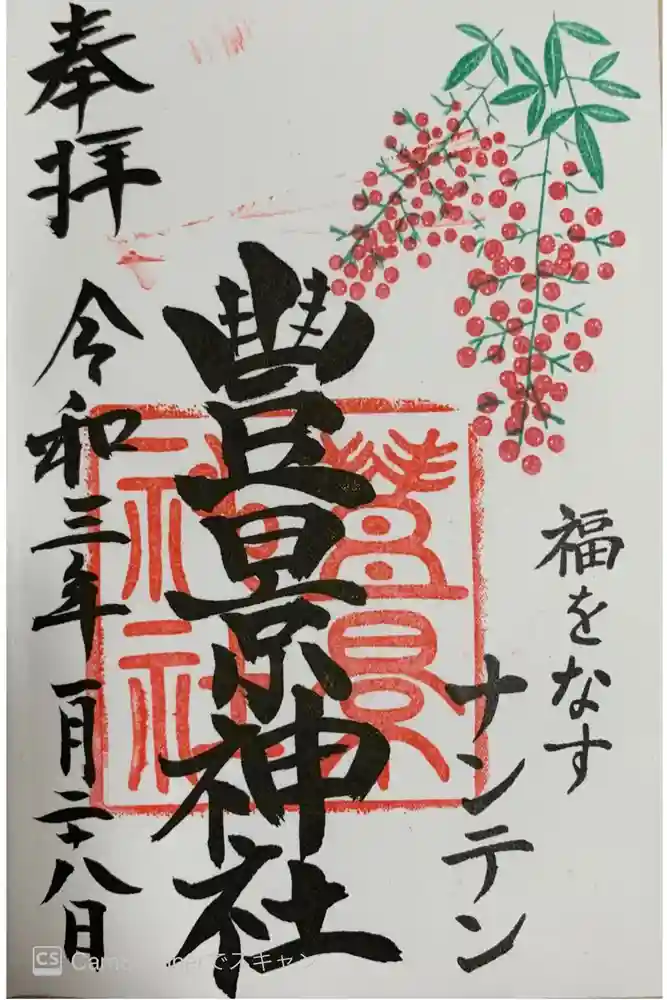 福をなす
ナンテン
豊景神社
豊景神社
奉拝
令和三年一月二十八日
CS CamScannerでスキャン